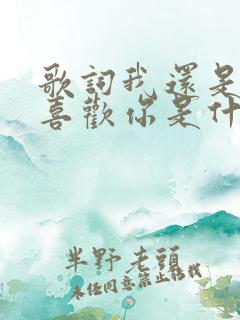 歌詞我還是
喜歡你是什
半野老頭
未任同意禁止轉載